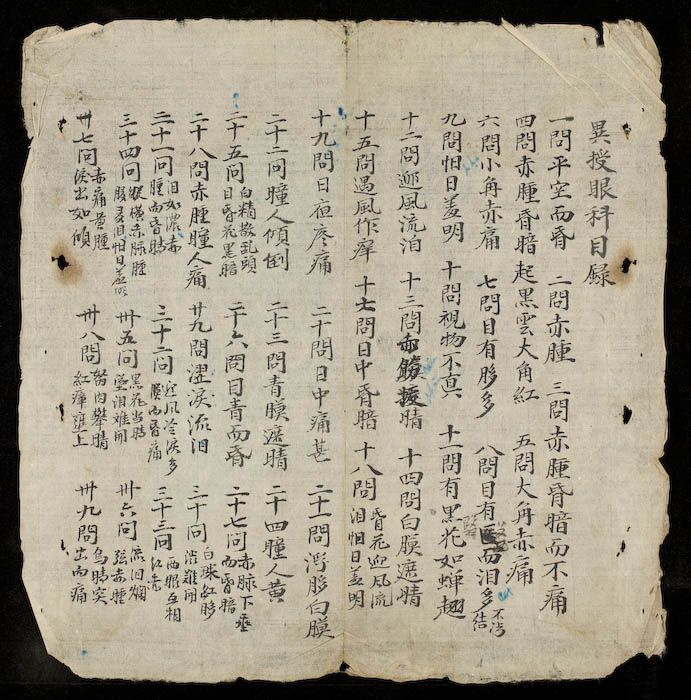 異授眼科目録
一問平空而昏 二問赤腫 三問赤腫昏暗而不痛
四問赤腫昏暗起黑雲大角紅 五問大角赤痛
六問小角赤痛 七問目有眵多 八問目有而泪多不濇結
九問怕日羞明 十問視物不真 十一問有黑花如蟬翅
十二問迎風流泊 十三問赤膜晴 十四問白膜遮晴
十五問遇風作癢 十七問日中昏暗 十八問昏花迎風流泪怕日羞明
十九問日夜疼痛 二十問日中痛甚 二十一問濇眵白膜
二十二问瞳人傾倒 二十三問青膜遮晴 二十四瞳人黄
二十五问白精散乱頭目昏花黑暗 二十六問目青而昏 二十七問赤脉下垂而昏暗
二十八問赤腫瞳人痛 廿九問澀淚流泪 三十問白珠紅眵濇難開
三十一问泪如濃赤腫而昏 三十二问迎風冷淚多膜而昏痛 三十三问两眼互相红
三十四问眼橫赤脉腫泪怕日羞明 卅五问黑花当晴墜泪难開 卅六問流泪爛弦赤腫
卅七问赤痛黄腫淚出如傾 卅八問努肉攀睛紅瘴壅上 卅九問烏睛突出而痛